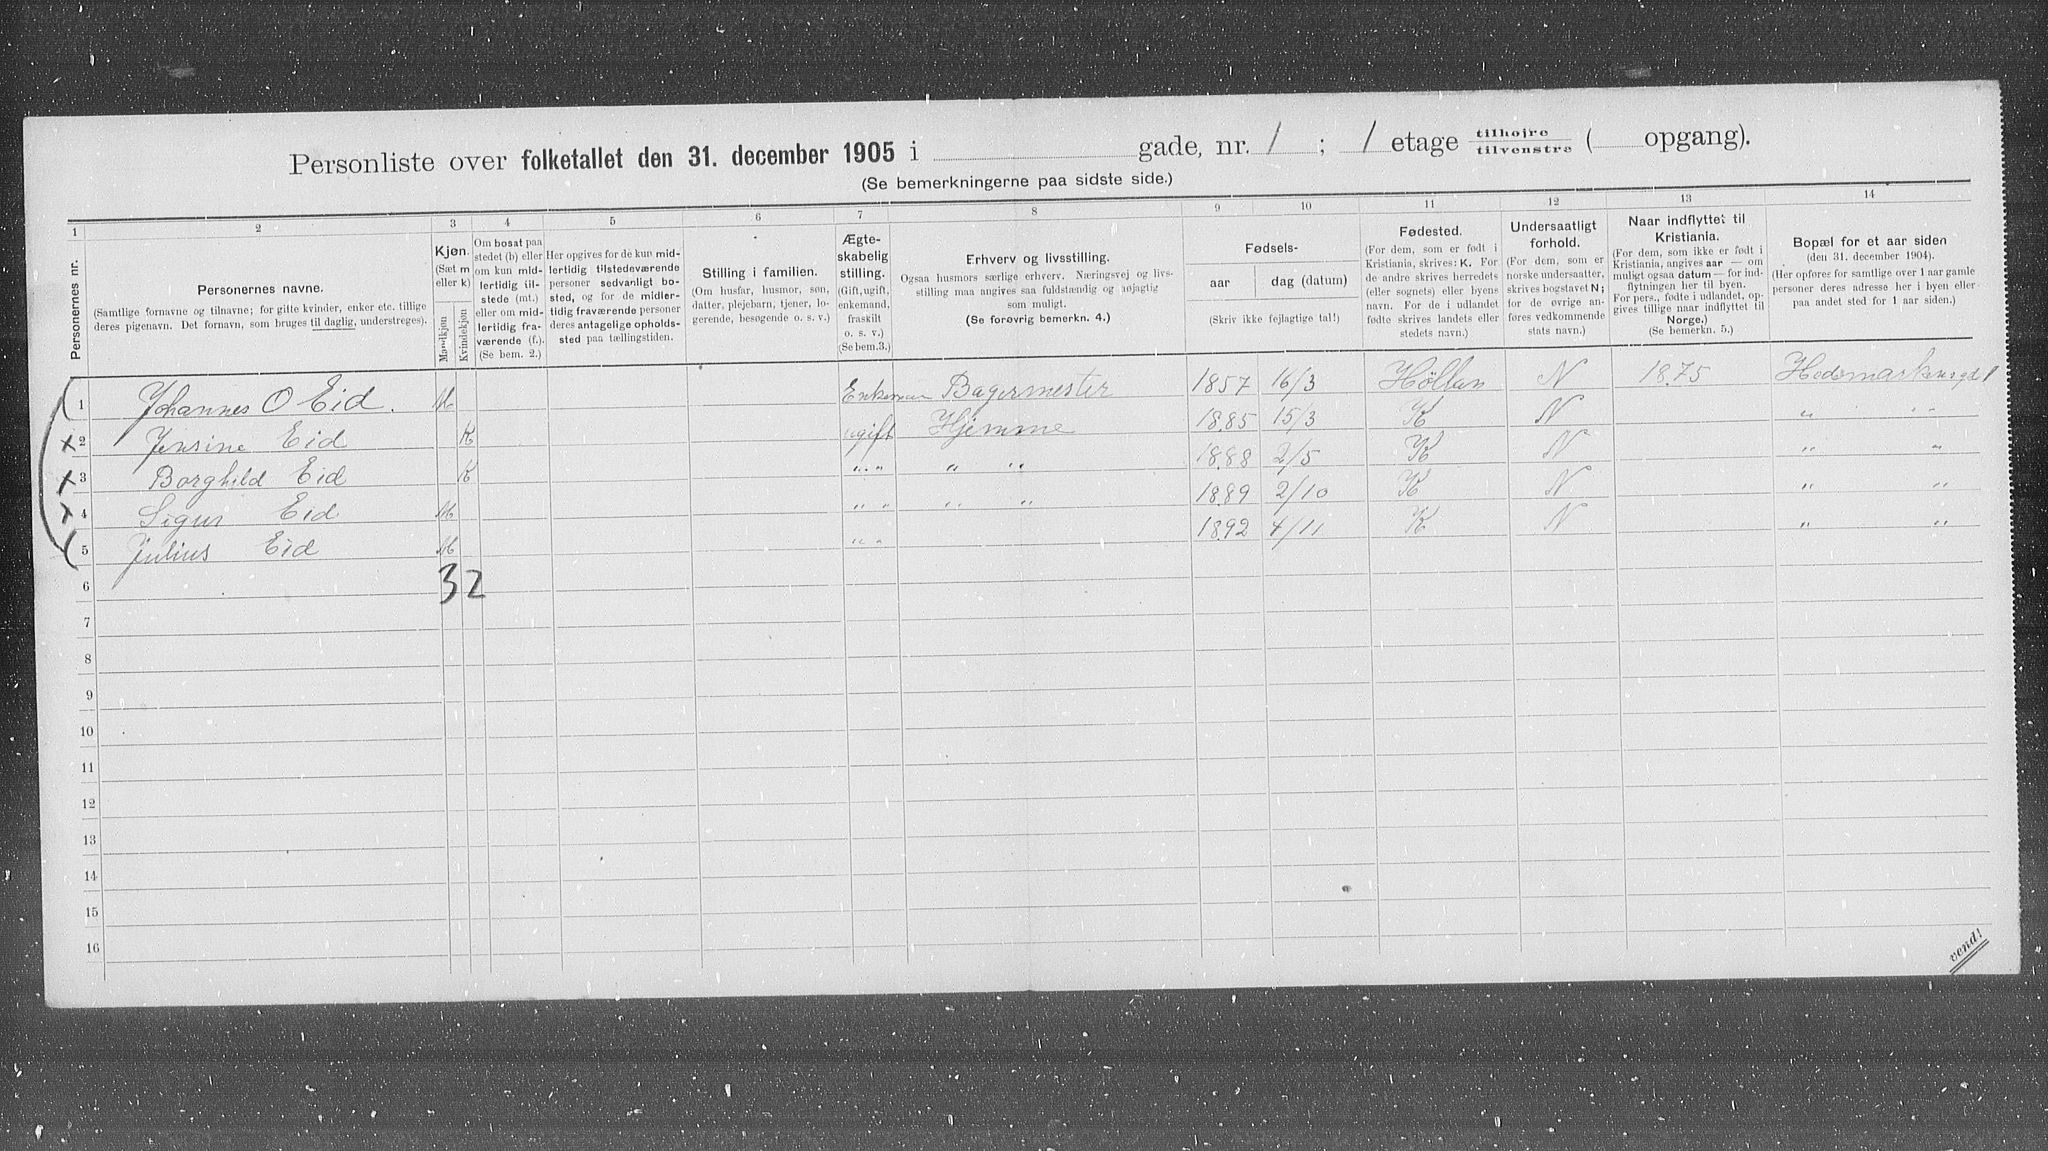 Personliste over folketallet den 31. december 1905 i gade, nr. 1 ; 1 etage tilhøjre tilvenstre ( opgang).
(Se bemerkningerne paa sidste side.)
1 2 3 4 5 6 7 8 9 10 11 12 13 14
Personernes nr.
Personernes navne.
(Samtlige fornavne og tilnavne; for gifte kvinder, enker etc. tillige
deres pigenavn. Det fornavn, som bruges til daglig, understreges).
Kjøn.
(Sæt m
eller k)
Mandkjøn
Kvindekjøn
Om bosat paa
stedet (b) eller
om kun mid-
lertidig til-
stede (mt.)
eller om mid-
lertidig fra-
værende (f.).
(Se bem. 2.)
Her opgives for de kun mid-
lertidig tilstedeværende
personer sedvanligt bo-
sted, og for de midler-
tidig fraværende personer
deres antagelige opholds-
sted paa tællingstiden.
Stilling i familien.
(Om husfar, husmor, søn,
datter, plejebarn, tjener, lo-
gerende, besøgende o. s. v.)
Ægte-
skabelig
stilling.
(Gift, ugift,
enkemand,
fraskilt
o. s. v.)
(Se bem.3.)
Erhverv og livsstilling.
Ogsaa husmors særlige erhverv. Næringsvej og livs-
stilling maa angives saa fuldstændig og nøjagtig
som muligt.
(Se forøvrig bemerkn. 4.)
Fødsels-
aar dag (datum)
(Skriv ikke fejlagtige tal!)
Fødested.
(For dem, som er født i
Kristiania, skrives: K. For
de andre skrives herredets
(eller sognets) eller byens
navn. For de i udlandet
fødte skrives landets eller
stedets navn.)
Undersaatligt
forhold.
(For dem, som er
norske undersaatter,
skrives bogstavet N;
for de øvrige an-
føres vedkommende
stats navn.)
Naar indflyttet til
Kristiania.
(For dem, som ikke er født i
Kristiania, angives aar — om
muligt ogsaa datum — for ind-
flytningen her til byen.
For pers., fødte i udlandet, op-
gives tillige naar indflyttet til
Norge.)
(Se bemerkn. 5.)
Bopæl for et aar siden
(den 31. december 1904).
(Her opføres for samtlige over 1 aar gamle
personer deres adresse her i byen eller
paa andet sted for 1 aar siden.)
1 Johannes O Eid. M Enkeman Bagermester 1857 16/3 Höllan N 1875 Hedemarkensgd 1
x 2 Jensine Eid K ugift Hjemme 1885 15/3 K N " " "
x 3 Borghild Eid K " " " " 1888 2/5 K N " "
x 4 Sigur Eid M " " " " 1889 2/10 K N " "
5 Julius Eid M " " 1892 4/11 K N " "
6 3 2
7
8
9
10
11
12
13
14
15
16
vend!